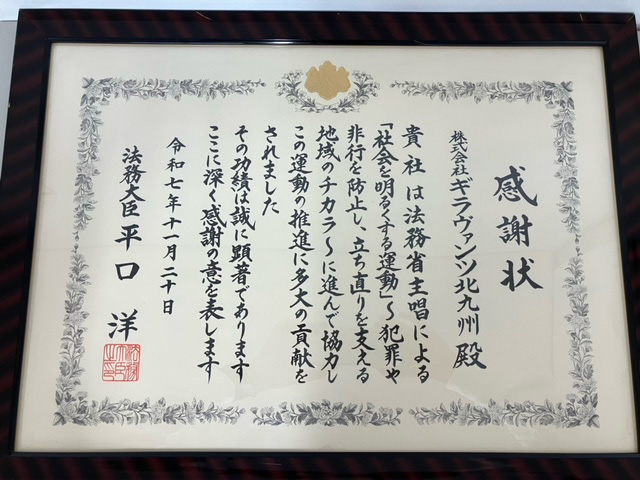 感謝状
株式会社ギラヴァンツ北九州殿
貴社は法務省主唱による
「社会を明るくする運動」～犯罪や
非行を防止し、立ち直りを支える
地域のチカラ～に進んで協力し
この運動の推進に多大の貢献を
されました
その功績は誠に顕著であります
ここに深く感謝の意を表します
令和七年十一月二十日
法務大臣平口洋